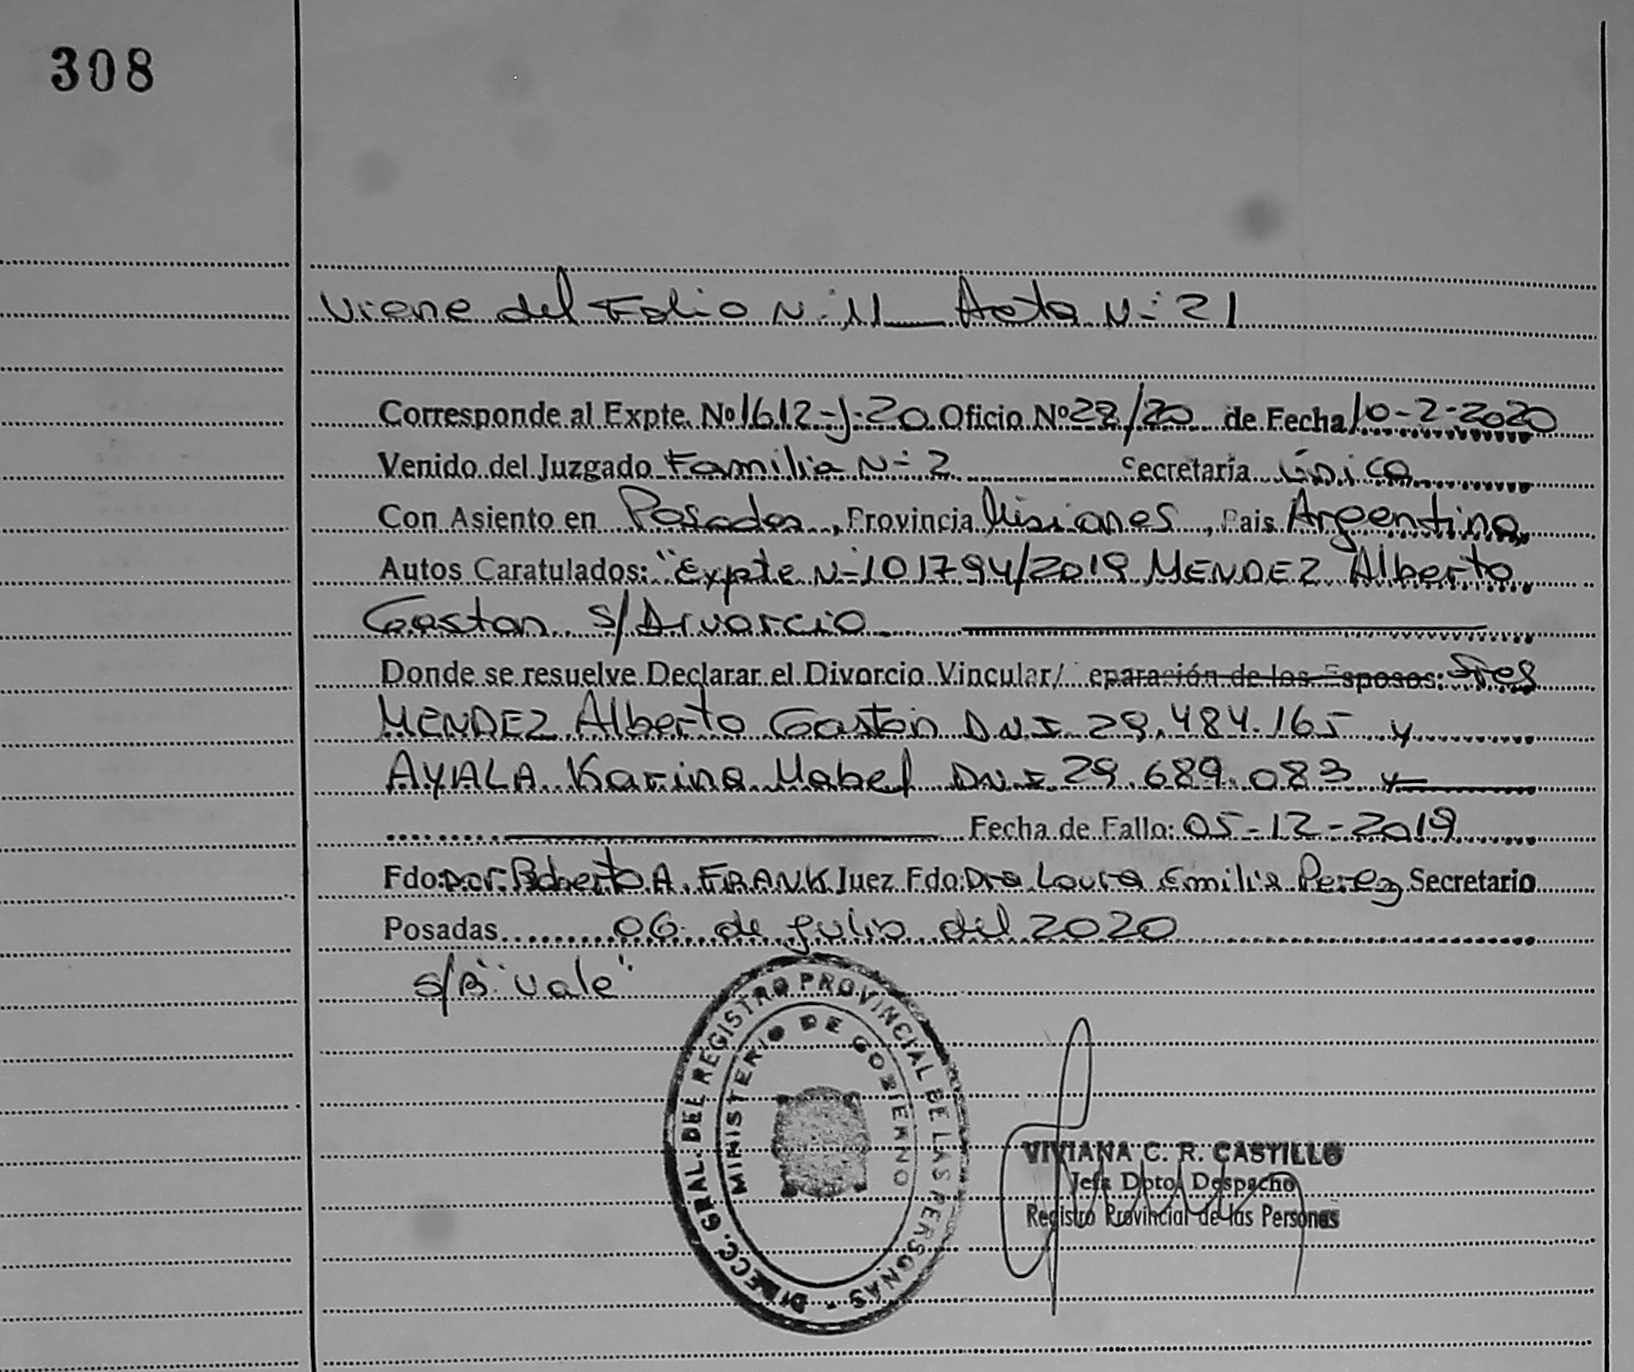 308
Viene del Folio N: 11 Acta N: 21
Corresponde al Expte. Nº 1612-J-20 Oficio Nº 28/20 de Fecha 10-2-2020
Venido del Juzgado Familia N: 2 Secretaría Única
Con Asiento en Posadas, Provincia Misiones, Pais Argentina
Autos Caratulados: "Expte N: 101794/2019 MENDEZ Alberto
Gaston s/Divorcio
Donde se resuelve Declarar el Divorcio Vincular/ eparación de los Esposos: Sres
MENDEZ Alberto Gastón D.N.I. 29.484.165 y
AYALA Karina Mabel D.N.I. 29.689.083
Fecha de Fallo: 05-12-2019
Fdo: Dr. Roberto A. FRANK Juez Fdo. Dra Laura Emilia Perez Secretario
Posadas 06 de julio del 2020
s/B "vale"
DIRECC. GRAL. DEL REGISTRO PROVINCIAL DE LAS PERSONAS -
MINISTERIO DE GOBIERNO
VIVIANA C. R. CASTILLO
Jefa Dpto. Despacho
Registro Provincial de las Personas